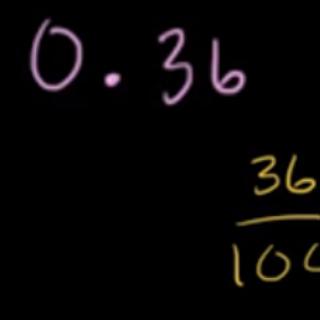 0.36
36
10